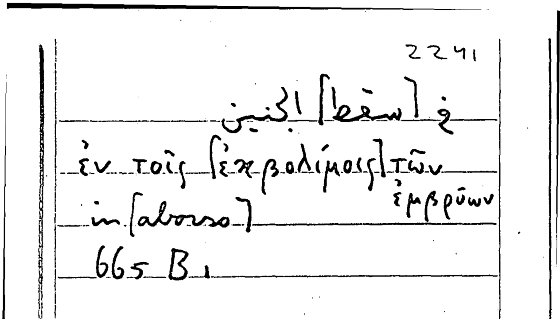 2241
في [سقط] الجنين
ἐν τοῖς [ἐκβολίμοις] τῶν
ἐμβρύων
in [aborso]
665 B 1